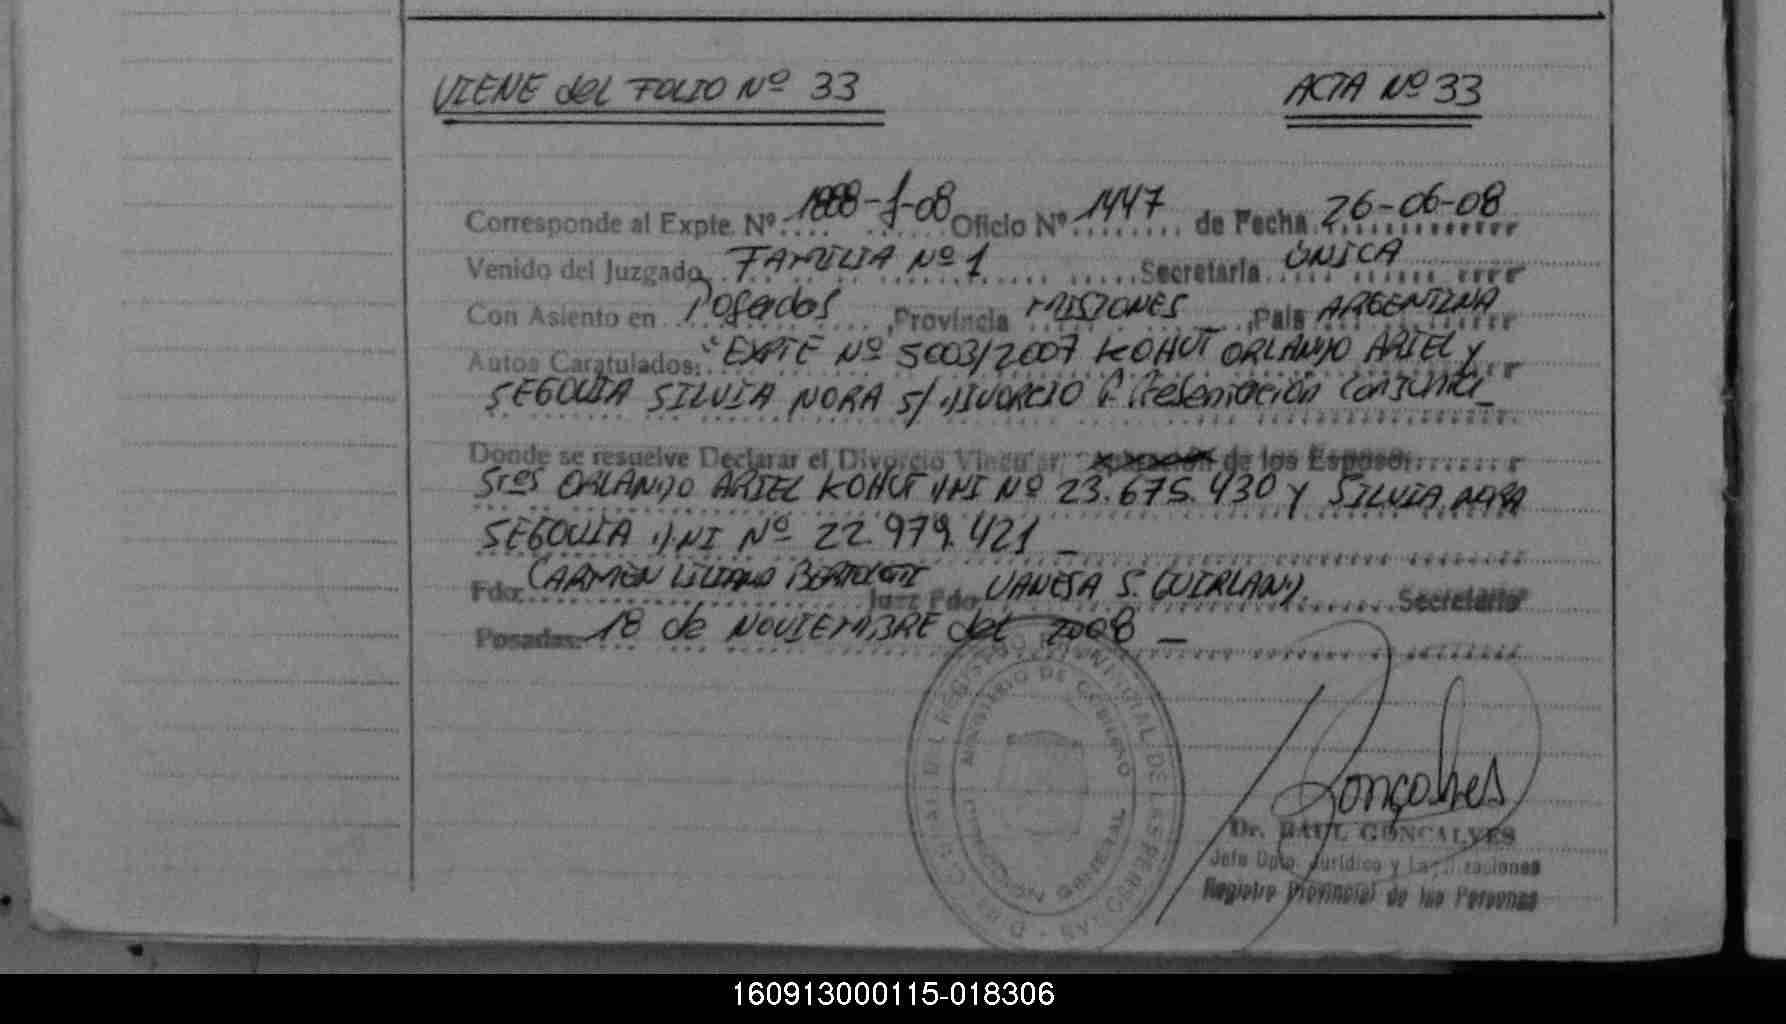 VIENE del FOLIO Nº 33
ACTA Nº 33
Corresponde al Expte. Nº 1888-J-08 Oficio Nº 1447 de Fecha 26-06-08
Venido del Juzgado FAMILIA Nº 1 Secretaria ÚNICA
Con Asiento en Posadas, Provincia MISIONES, Pais ARGENTINA
Autos Caratulados: "EXPTE Nº 5003/2007 KOHUT ORLANDO ARIEL y
SEGOVIA SILVIA NORA S/ DIVORCIO P. Presentación Conjunta_
Donde se resuelve Declarar el Divorcio Vincular, de los Esposos
Sres ORLANDO ARIEL KOHUT DNI Nº 23.675.430 y SILVIA NORA
SEGOVIA DNI Nº 22.979.421 _
Fdo: CARMEN LILIANA Juez Fdo. VANESA S. GUIRLAND. Secretario
Posadas: 18 de NOVIEMBRE del 2008 _
MINISTERIO DE GOBIERNO
DIRECCION GENERAL
REGISTRO PROVINCIAL DE LAS PERSONAS
Gonçalves
Dr. RAUL GONCALVES
Jefe Dpto. Jurídico y Legalizaciones
Registro Provincial de las Personas
160913000115-018306